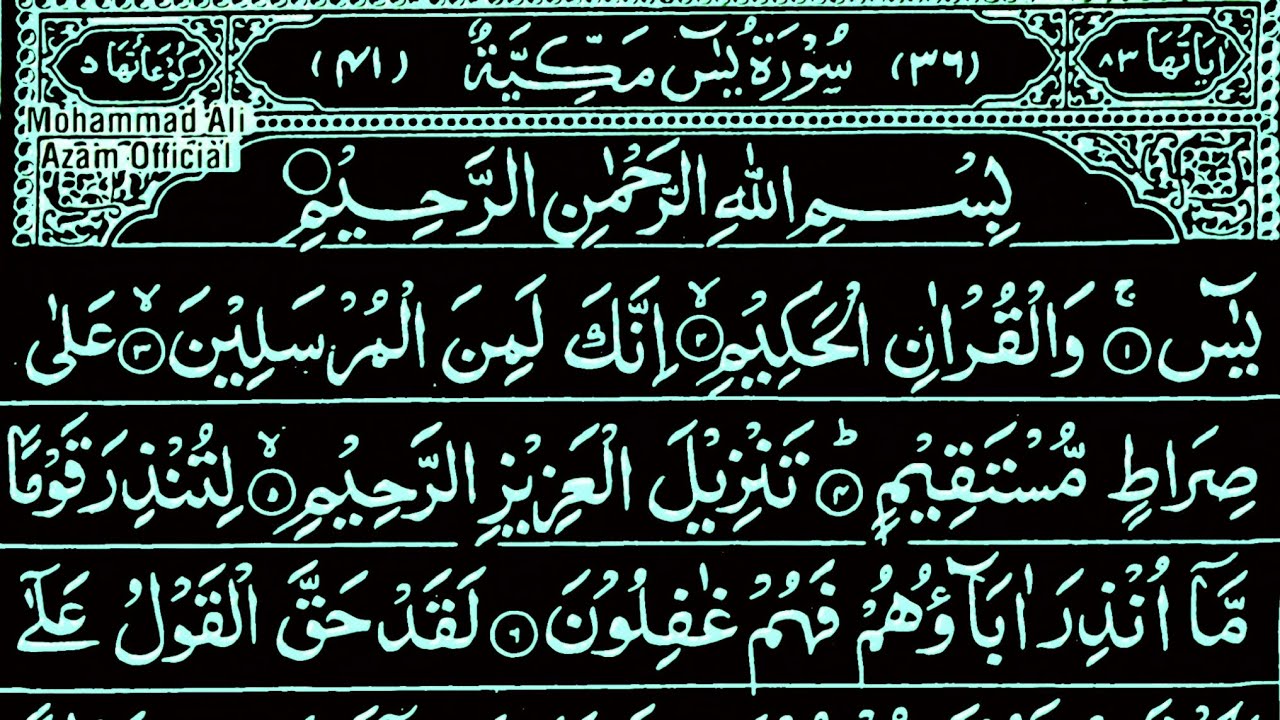 اٰيَاتُهَا ٨٣ (٣٦) سُوْرَةُ يٰسٓ مَكِّيَّةٌ (٤١) رُكُوْعَاتُهَا ٥
Mohammad Ali
Azam Official
بِسْمِ اللّٰهِ الرَّحْمٰنِ الرَّحِيْمِ
يٰسٓ ۚ ﴿١﴾ وَالْقُرْاٰنِ الْحَكِيْمِ ۙ ﴿٢﴾ اِنَّكَ لَمِنَ الْمُرْسَلِيْنَ ۙ ﴿٣﴾ عَلٰى
صِرَاطٍ مُّسْتَقِيْمٍ ؕ ﴿٤﴾ تَنْزِيْلَ الْعَزِيْزِ الرَّحِيْمِ ۙ ﴿٥﴾ لِتُنْذِرَ قَوْمًا
مَّاۤ اُنْذِرَ اٰبَآؤُهُمْ فَهُمْ غٰفِلُوْنَ ﴿٦﴾ لَقَدْ حَقَّ الْقَوْلُ عَلٰٓى